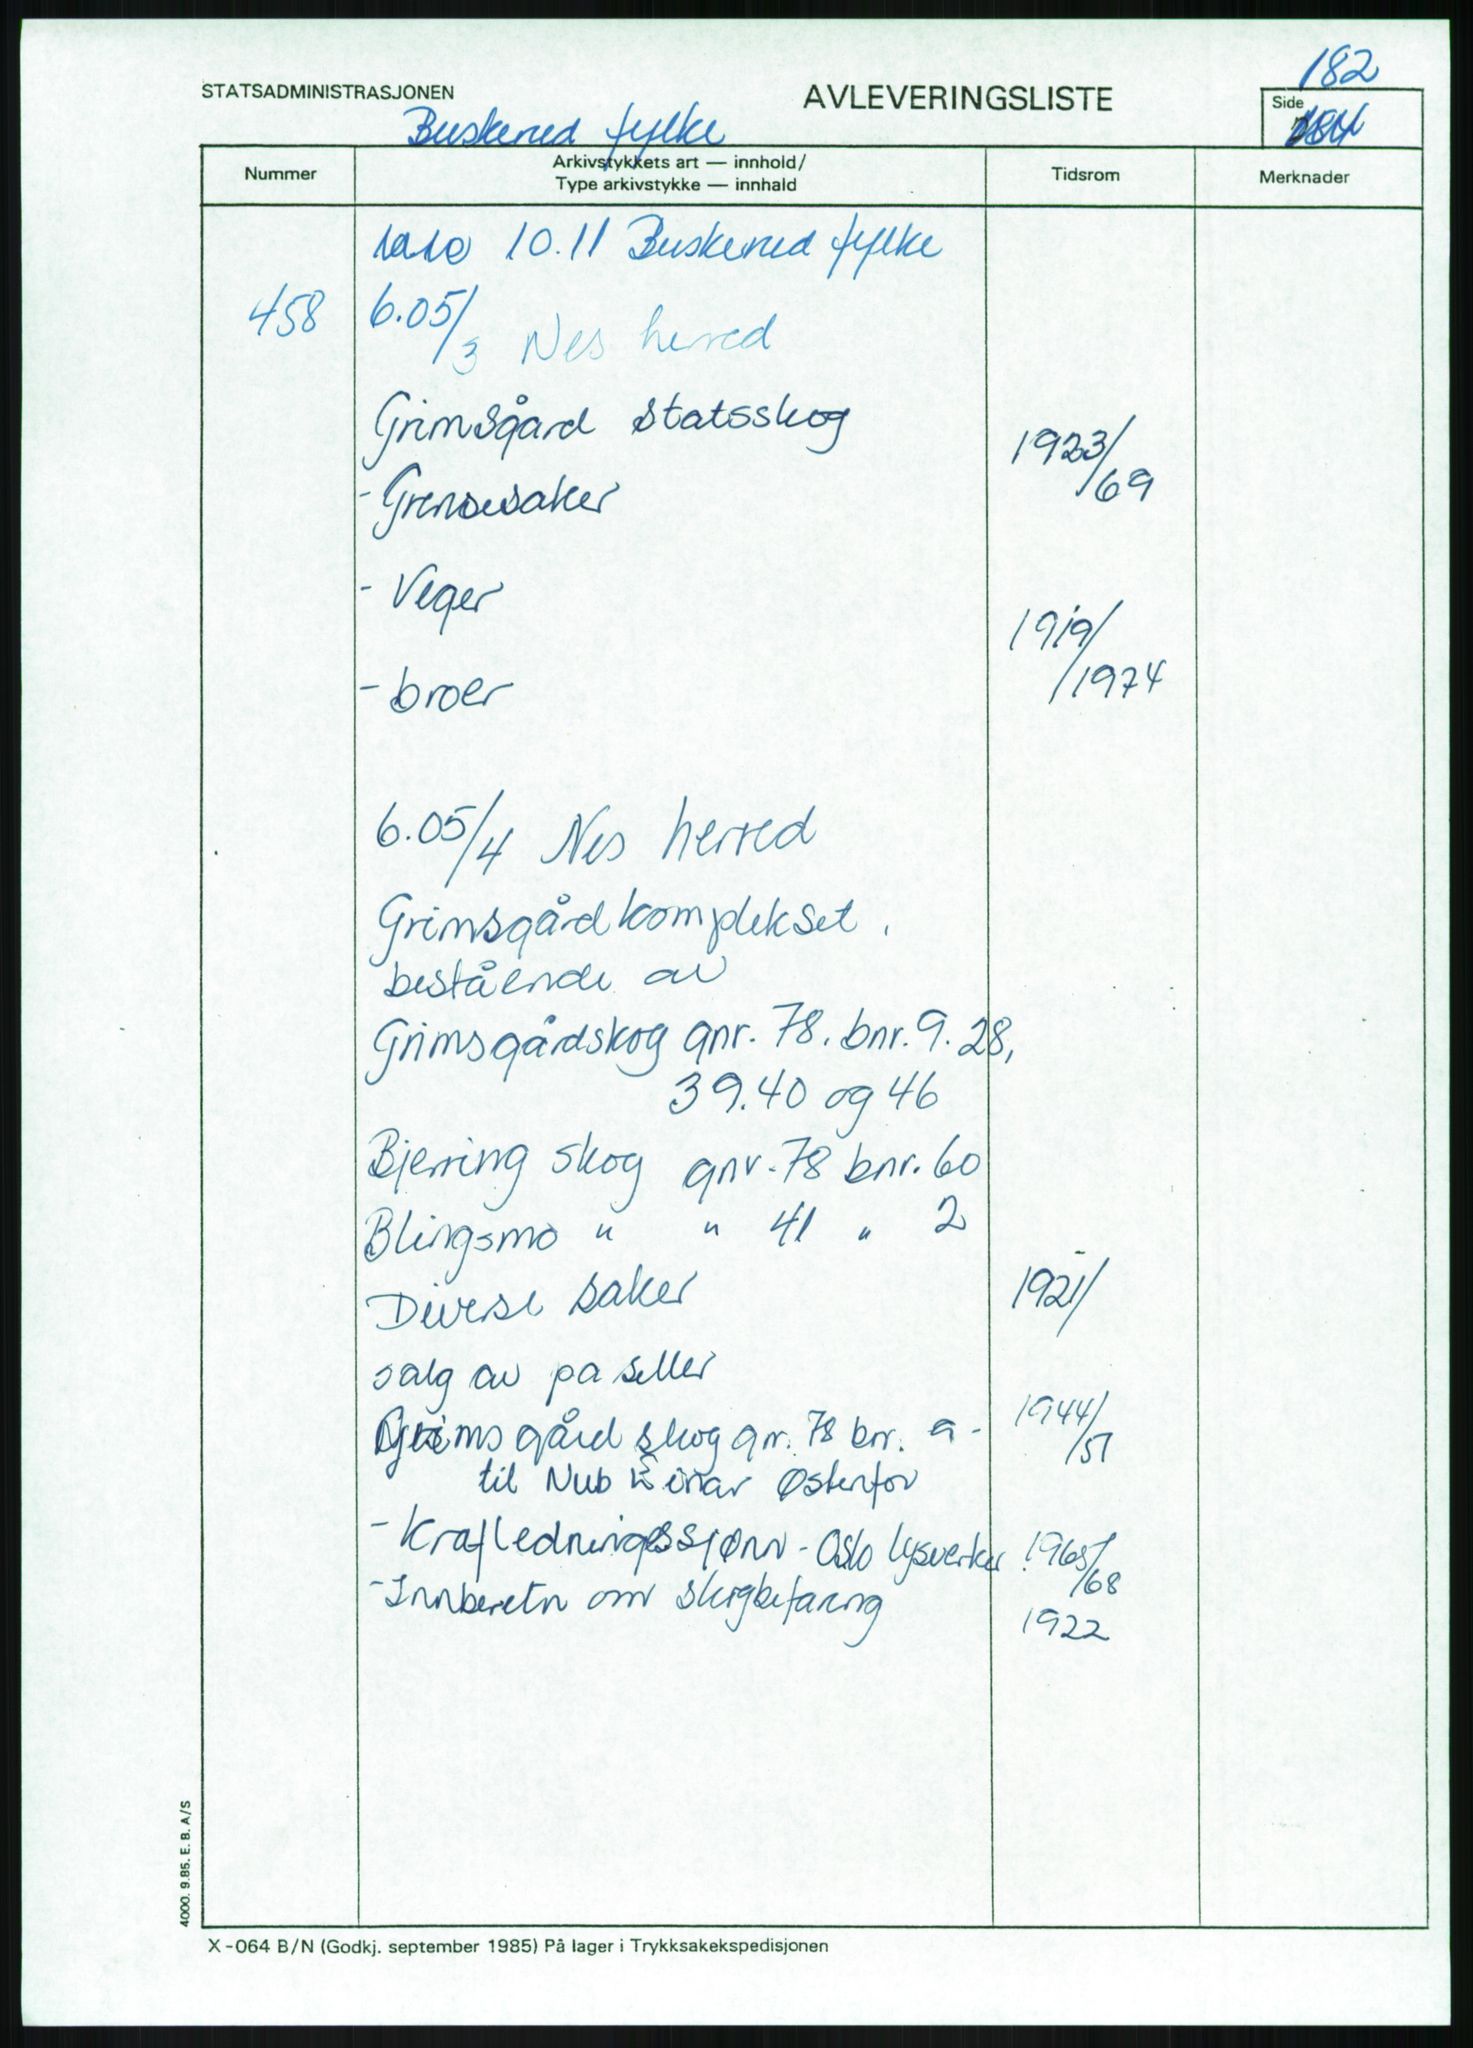 182
STATSADMINISTRASJONEN
AVLEVERINGSLISTE
Side
Buskerud fylke
Nummer
Arkivstykkets art — innhold/
Type arkivstykke — innhald
Tidsrom
Merknader
10.11 Buskerud fylke
458 6.05/3 Nes herred
Grimsgård statsskog
1923/69
- Grensesaker
- Veger
1919/1974
- broer
6.05/4 Nes herred
Grimsgårdkomplekset.
bestående av
Grimsgårdskog gnr. 78. bnr. 9. 28,
39.40 og 46
Bjerring skog gnr. 78 bnr. 60
Blingsmo " " 41 " 2
Diverse saker 1921/
salg av paseller
Grimsgård skog gnr. 78 bnr. 9 - 1944/51
til Nub Einar Østenfor
- Krafledningssjønn - Oslo lysverker 1965/68
- Innberetn om skogbefaring 1922
4000. 9.85. E. B. A/S
X-064 B/N (Godkj. september 1985) På lager i Trykksakekspedisjonen